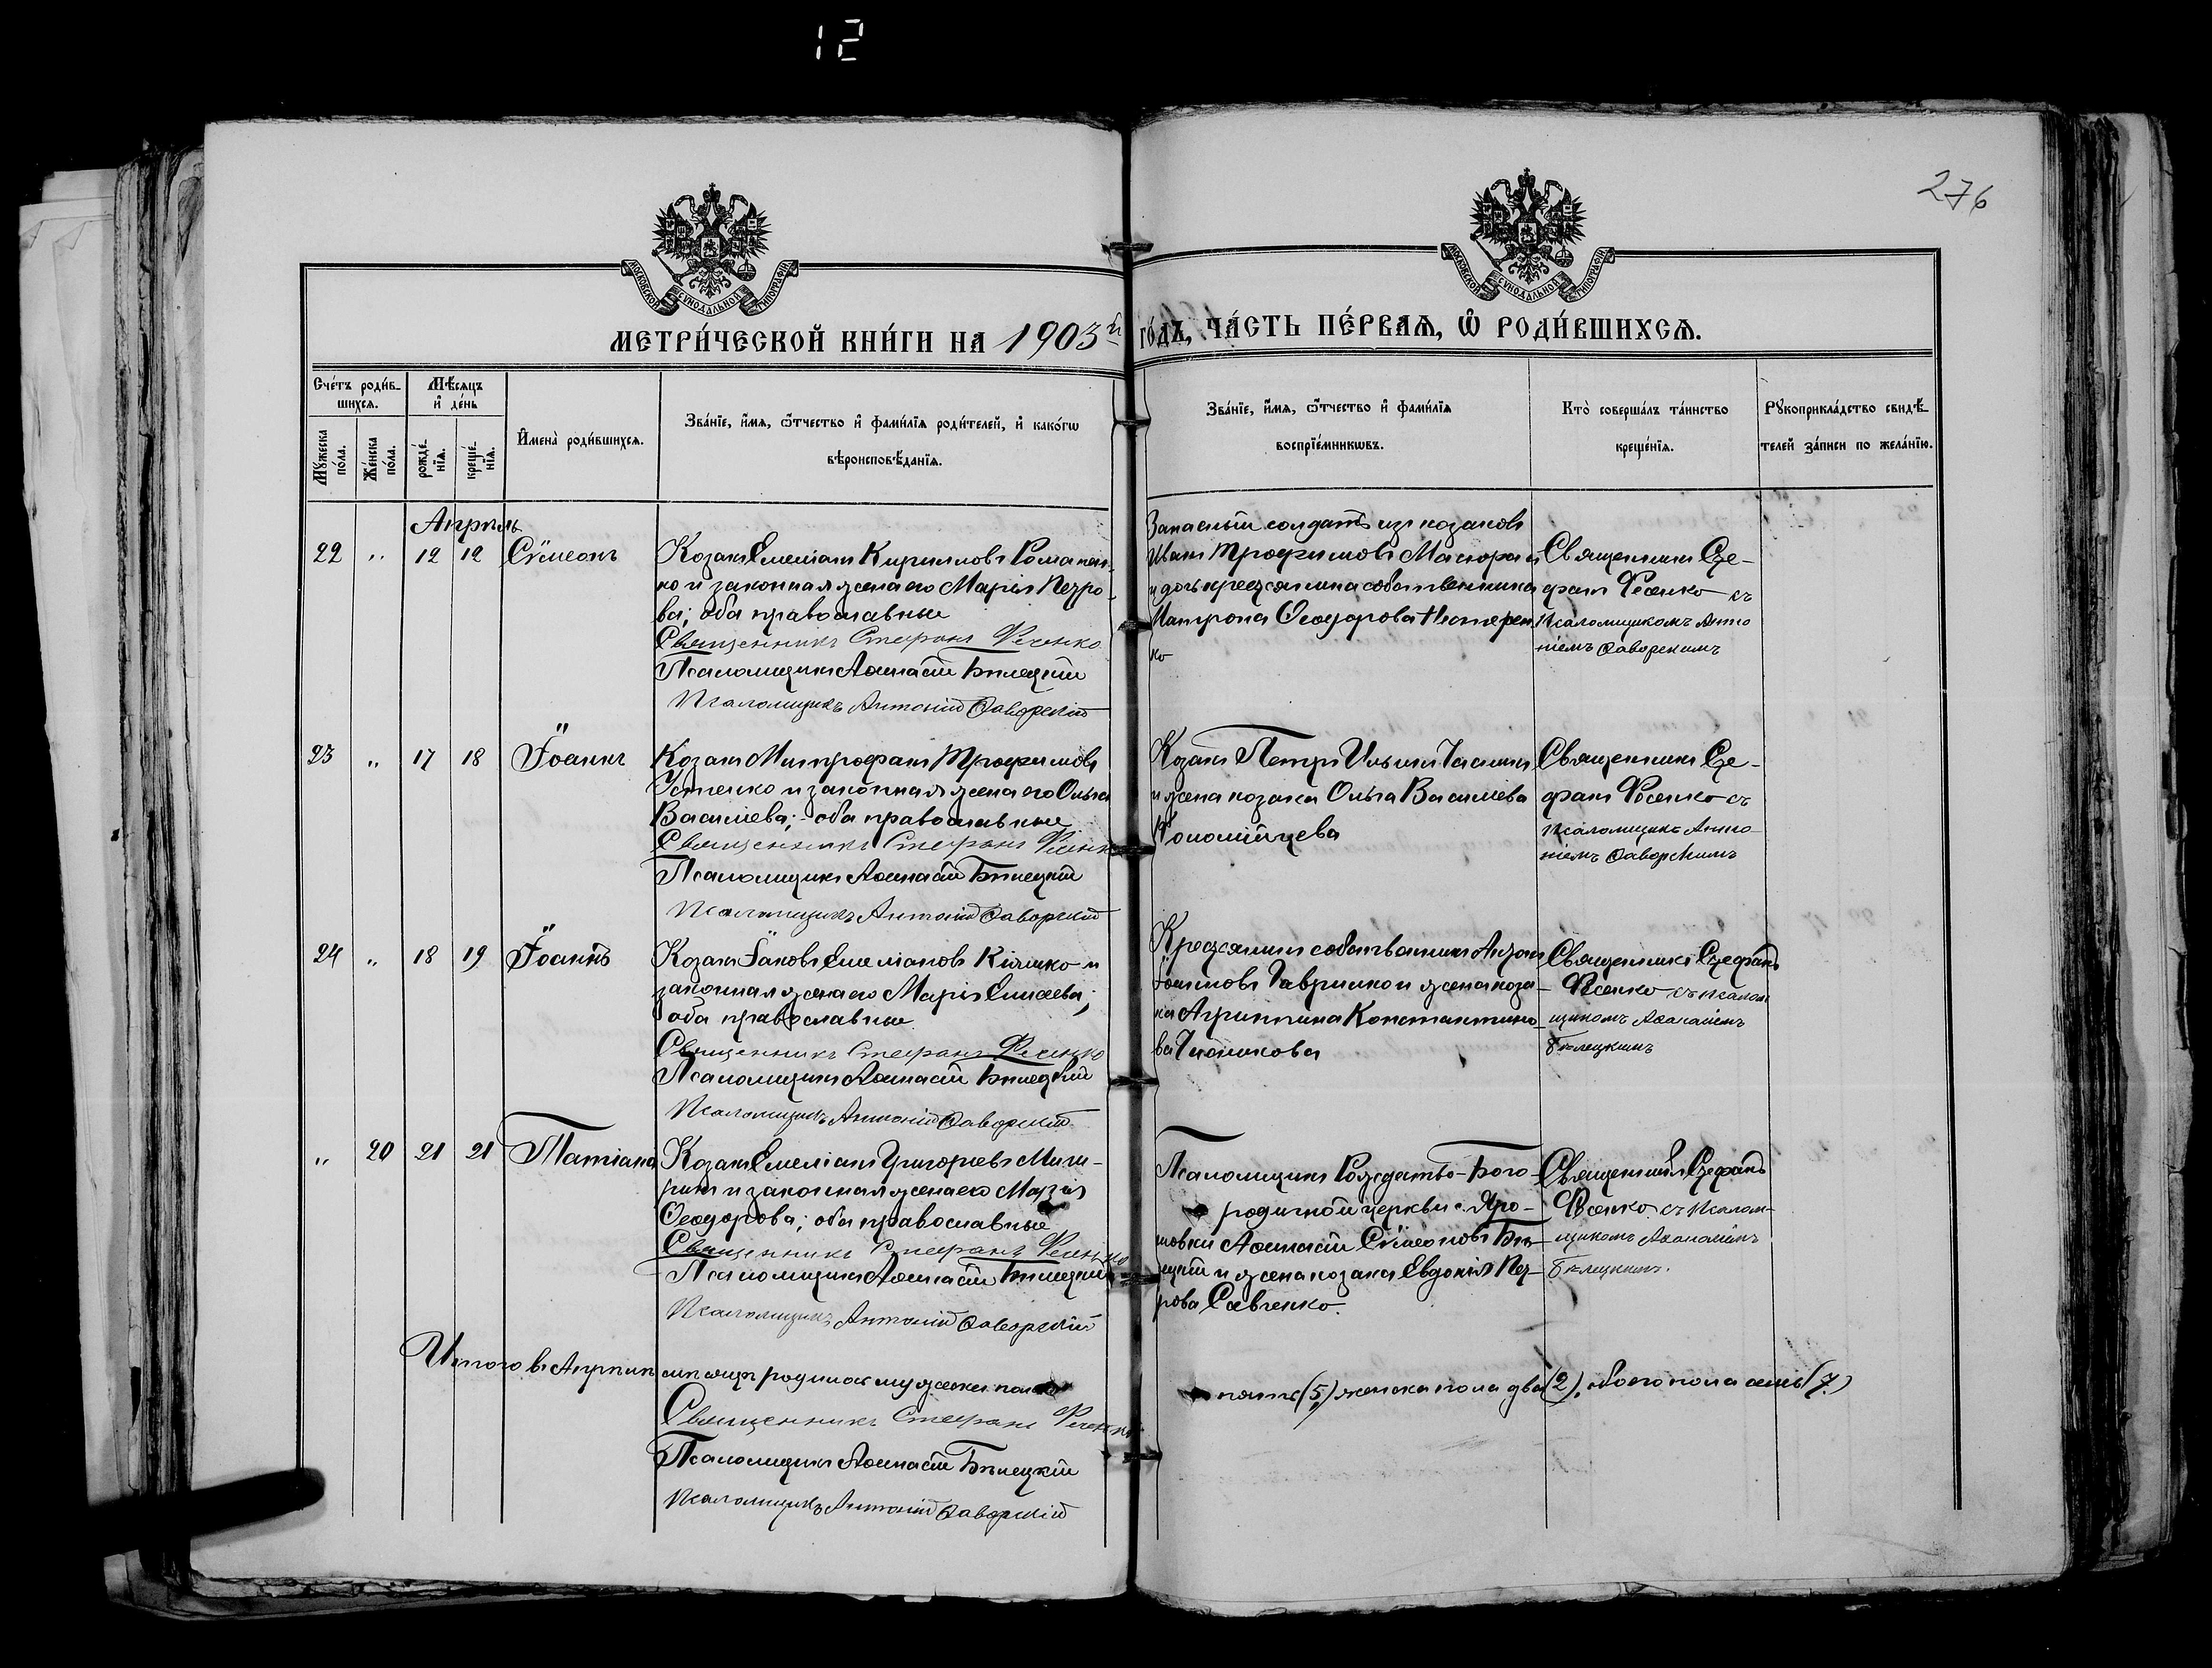 12
276
МОСКОВСКОЙ СѴНОДАЛЬНОЙ ТИПОГРАФІИ
МОСКОВСКОЙ СѴНОДАЛЬНОЙ ТИПОГРАФІИ
МЕТРИ́ЧЕСКОЙ КНИ́ГИ НА 1903й го́дъ, ЧА́СТЬ ПЕ́РВАѦ, Ѡ҆ РОДИ́ВШИХСѦ.
Сче́тъ роди́в-
шихсѧ.
Мꙋ́жеска по́ла.
Же́нска по́ла.
Мѣ́сѧцъ
и҆ де́нь
рожде́-
нїѧ.
креще́-
нїѧ.
И҆мена̀ роди́вшихсѧ.
Зва́нїе, и҆́мѧ, ѻ҆́тчество и҆ фамѝлїѧ роди́телей, и҆ како́гѡ
вѣроисповѣ́данїѧ.
Зва́нїе, и҆́мѧ, ѻ҆́тчество и҆ фами́лїѧ
воспрїе́мникѡвъ.
Кто̀ соверша́лъ та́инство
креще́нїѧ.
Рꙋкоприкла́дство свидѣ́-
телей за́писи по жела́нїю.
Апрѣль
22 „ 12 12 Сѵмеонъ
Козакъ Емеліанъ Кирилловъ Романен-
ко и законная жена его Марія Петро-
ва; оба православные
Священникъ Стефанъ Фесенко
Псаломщикъ Аѳанасій Бѣлецкій
Псаломщикъ Антоній Заворскій
Запасный солдатъ изъ козаковъ
Иванъ Трофимовъ
и дочь крестьянина собственника
Матрона Ѳеодорова Нестерен
ко
Священникъ Сте-
фанъ Фесенко съ
псаломщикомъ Анто
ніемъ Заворскимъ
23 „ 17 18 Іоаннъ
Козакъ Митрофанъ Трофимовъ
Устенко и законная жена его Ольга
Васильева; оба православные
Священникъ Стефанъ Фесенко
Псаломщикъ Аѳанасій Бѣлецкій
Псаломщикъ Антоній Заворскій
Козакъ Петръ Ильинъ
и жена козака Ольга Васильева
Коломійцева
Священникъ Сте-
фанъ Фесенко съ
псаломщикъ Анто-
ніемъ Заворскимъ
24 „ 18 19 Іоаннъ
Козакъ Іаковъ Емеліановъ и
законная жена его Марія Елисеева;
оба православные
Священникъ Стефанъ Фесенко
Псаломщикъ Аѳанасій Бѣлецкій
Псаломщикъ Антоній Заворскій
Крестьянинъ собственникъ
Гаврилко и жена коза-
ка Агриппина Константино-
ва
Священникъ Стефанъ
Фесенко съ псалом
щикомъ Аѳанасіемъ
Бѣлецкимъ
„ 20 21 21 Татіана
Козакъ Емеліанъ Григорьевъ
и законная жена его Марія
Ѳеодорова; оба православные
Священникъ Стефанъ Фесенко
Псаломщикъ Аѳанасій Бѣлецкій
Псаломщикъ Антоній Заворскій
Псаломщикъ Рождество-Бого-
родичной церкви с. Яро-
шовки Аѳанасій Сѵмеоновъ Бѣ-
лецкій и жена козака Евдокія Пет-
рова Савченко.
Священникъ Стефанъ
Фесенко съ псалом-
щикомъ Аѳанасіемъ
Бѣлецкимъ.
Итого въ Апрѣлѣ мѣсяцѣ родилось мужеска пола пять (5) женска пола два (2), обоего пола семь (7)
Священникъ Стефанъ Фесенко
Псаломщикъ Аѳанасій Бѣлецкій
Псаломщикъ Антоній Заворскій